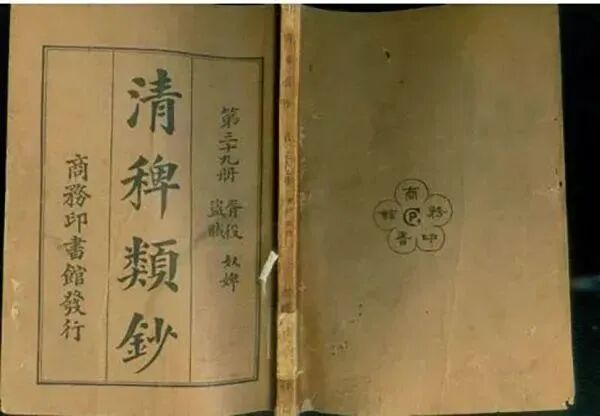 第三十九册 胥役 奴婢
盜賊
清稗類鈔
商務印書館發行
商務印書館
CP